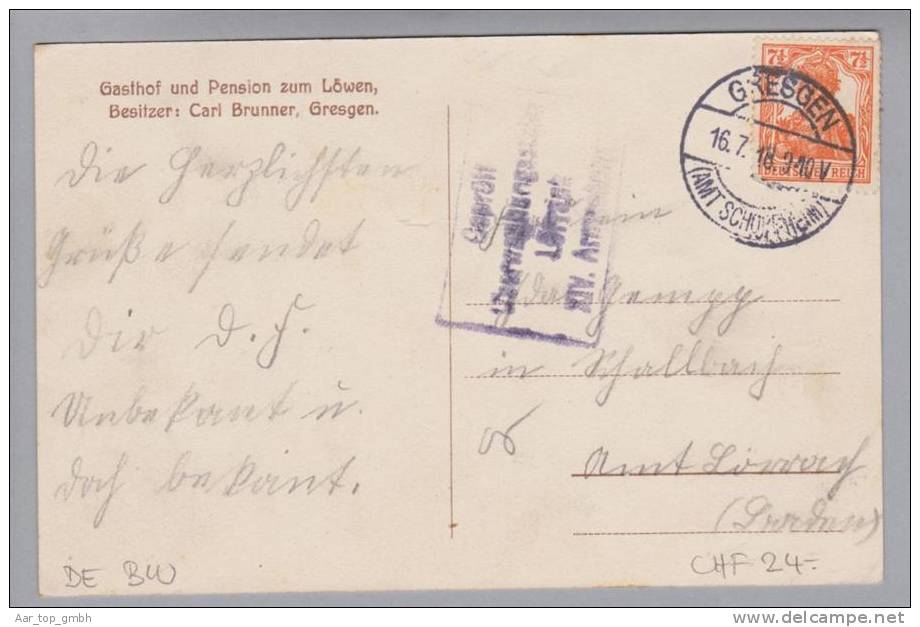 Gasthof und Pension zum Löwen,
Besitzer: Carl Brunner, Gresgen.
Die Herzlichsten
Grüße sendet
Dir d. H.
Unbekant u.
doch bekant.
DE BW
Geprüft
Überwachungs
Lörrach
XIV. Arm
7½ 7½
DEUTSCHES REICH
GRESGEN
16.7.18. 9-10 V
(AMT SCHOPFHEIM)
Gempp
in Schallbach
Amt Lörrach
(Baaden)
CHF 24.-
Aar_top_gmbh
www.delcampe.net